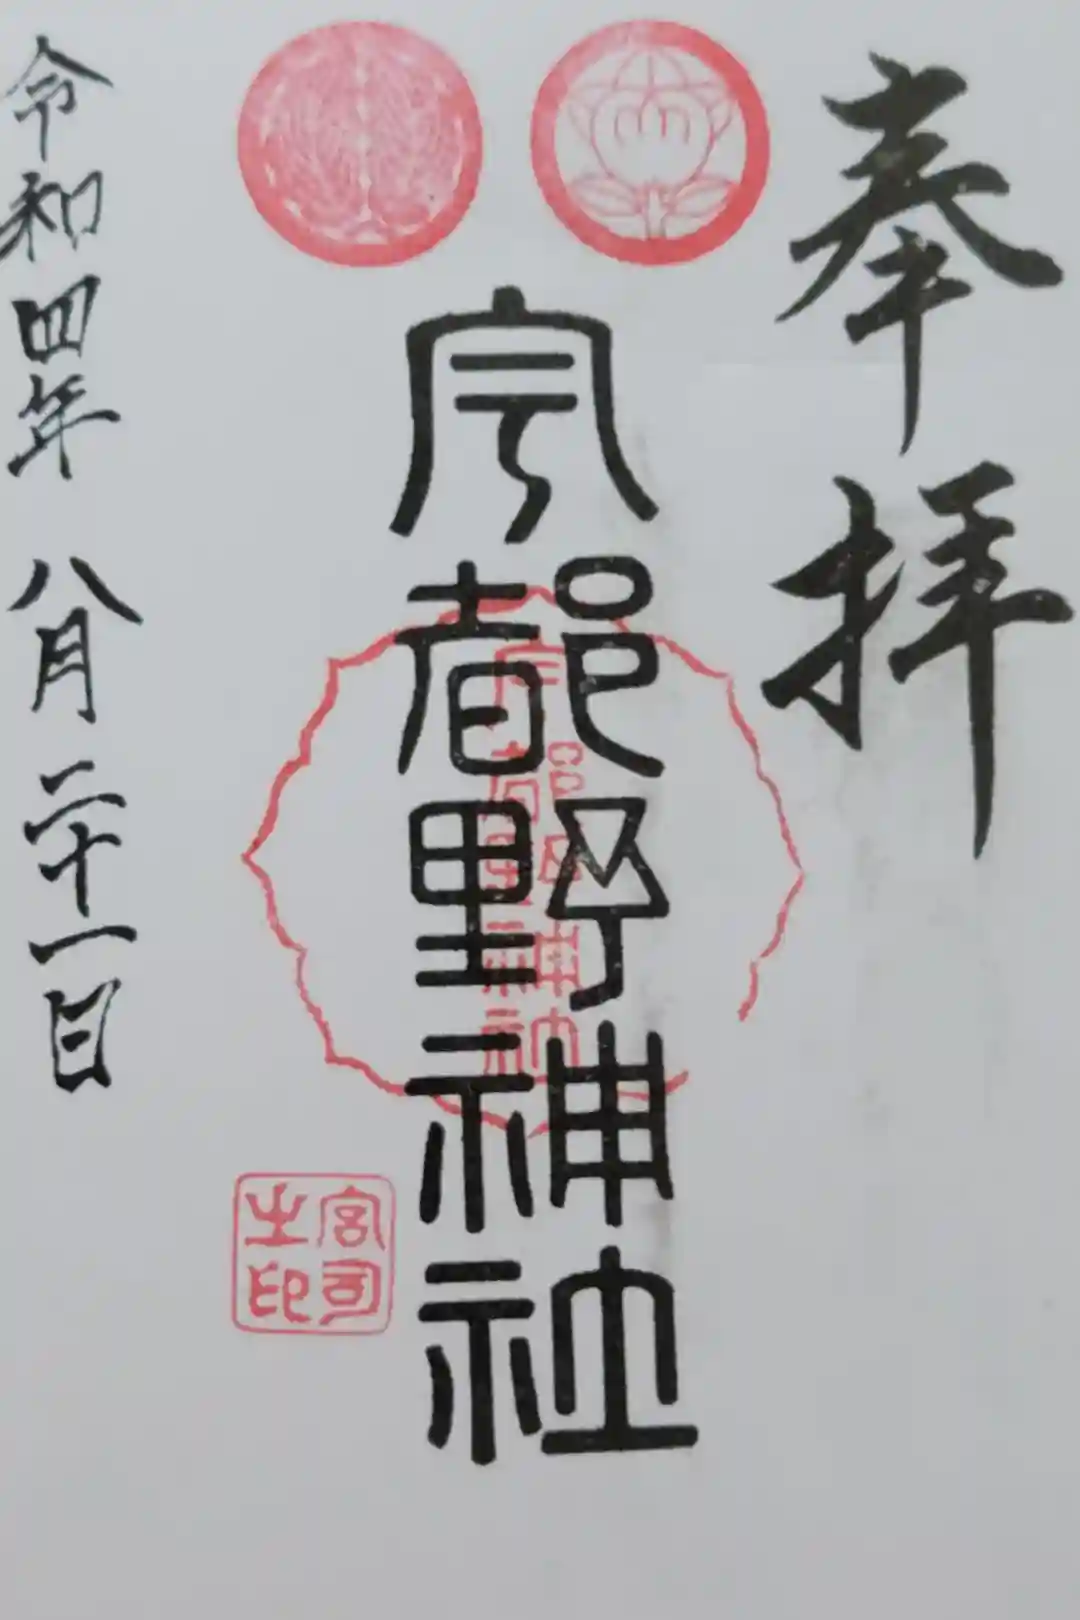 奉拝
宇都野神社
宇都野神社
宮司之印
令和四年 八月二十一日